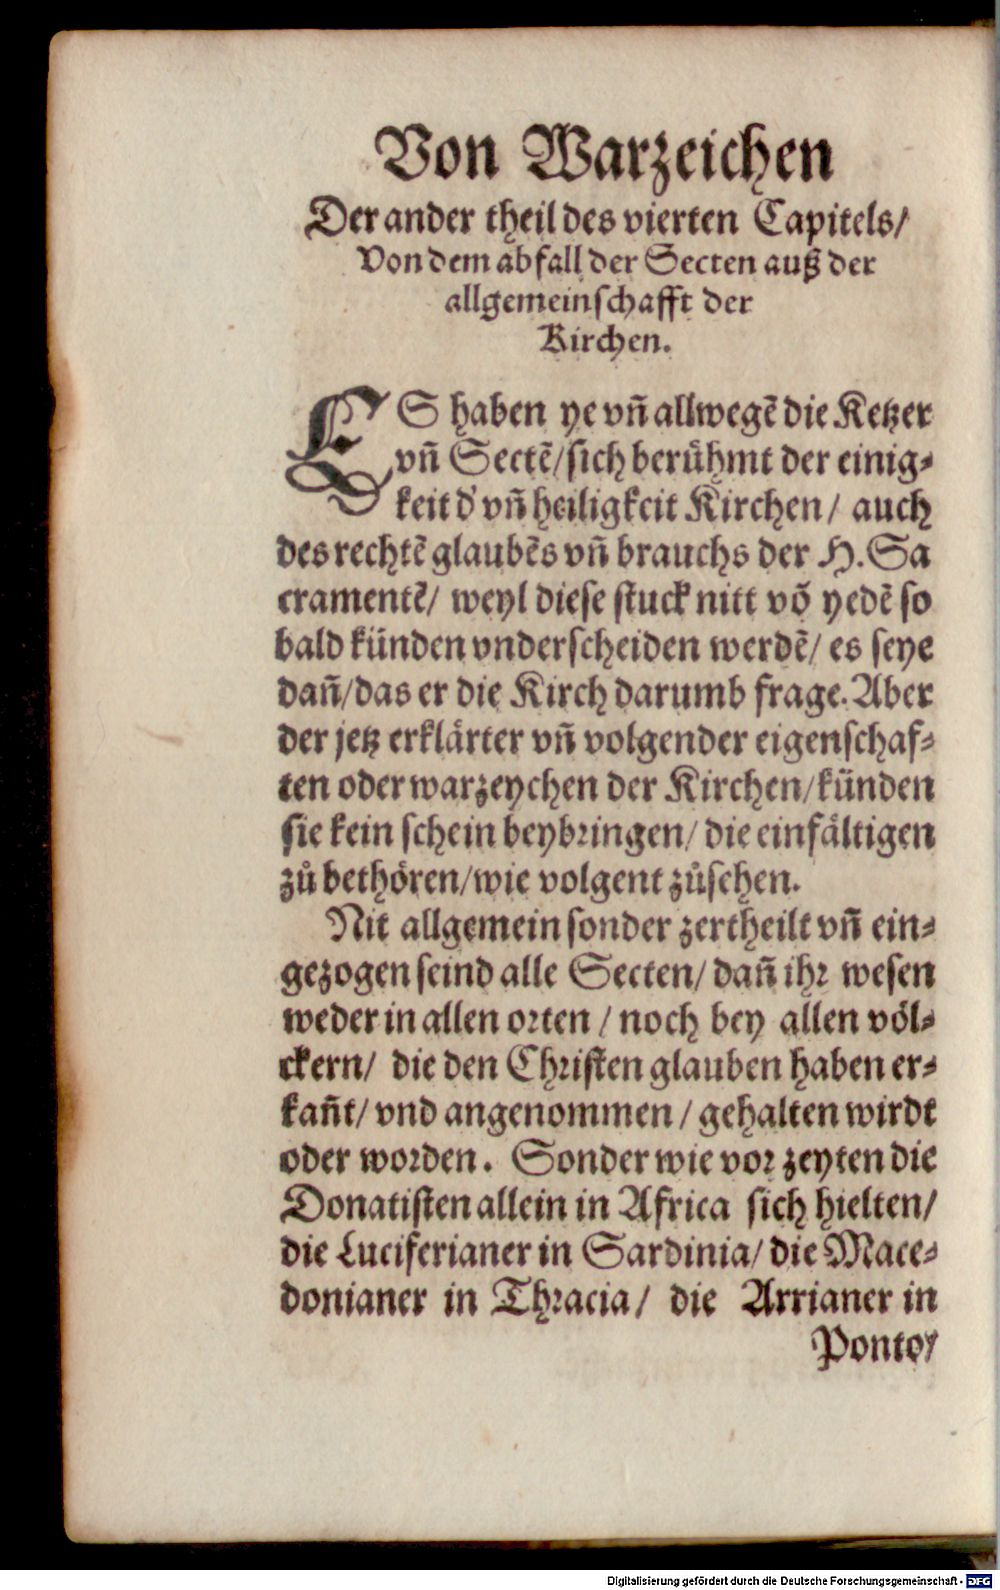 Von Warzeichen
Der ander theil des vierten Capitels/
Von dem abfall der Secten auß der
allgemeinschafft der
Kirchen.
ES haben ye vñ allwegẽ die Ketzer
vñ Sectẽ/ sich berůhmt der einig⸗
keit d' vñ heiligkeit Kirchen/ auch
des rechtẽ glaubẽs vñ brauchs der H. Sa
cramentẽ/ weyl diese stuck nitt võ yedẽ so
bald künden vnderscheiden werdẽ/ es seye
dañ/ das er die Kirch darumb frage. Aber
der jetz erklärter vñ volgender eigenschaf⸗
ten oder warzeychen der Kirchen/ künden
sie kein schein beybringen/ die einfältigen
zů bethören/ wie volgent zůsehen.
Nit allgemein sonder zertheilt vñ ein⸗
gezogen seind alle Secten/ dañ ihr wesen
weder in allen orten / noch bey allen völ⸗
ckern/ die den Christen glauben haben er⸗
kañt/ vnd angenommen / gehalten wirdt
oder worden. Sonder wie vor zeyten die
Donatisten allein in Africa sich hielten/
die Luciferianer in Sardinia/ die Mace⸗
donianer in Thracia/ die Arrianer in
Ponto/
Digitalisierung gefördert durch die Deutsche Forschungsgemeinschaft - DFG